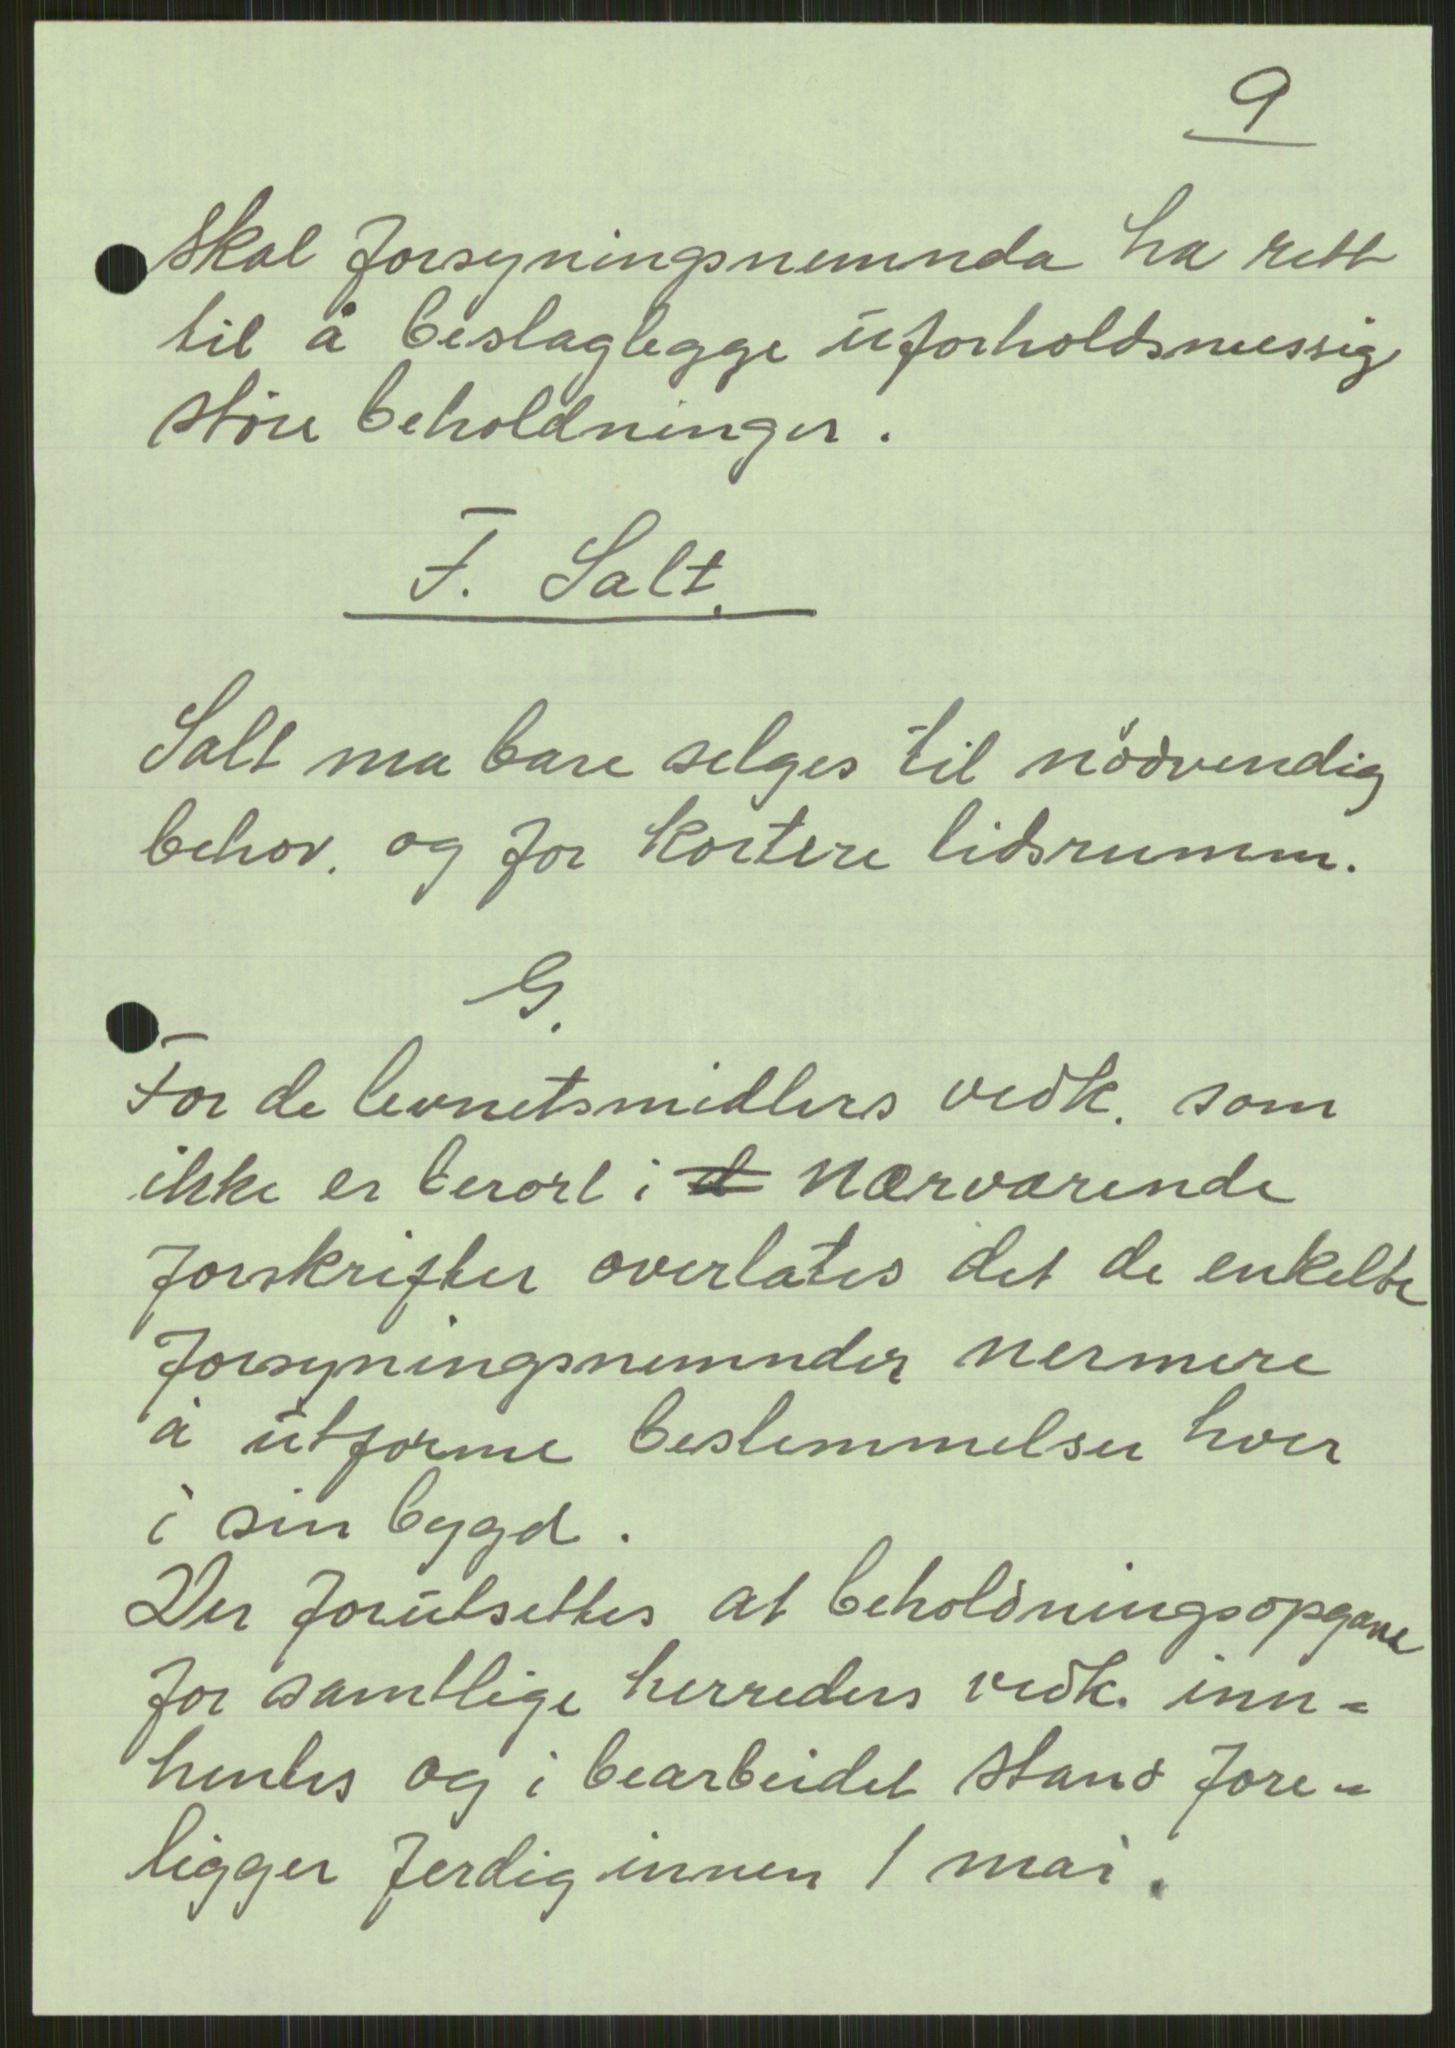 9
skal forsyningsnemnda ha rett
til å beslaglegge uforholdsmessig
störe beholdninger.
F. Salt.
Salt ma bare selges til nödvendig
behov. og for kortere tidsrumm.
G.
For de levnetsmidlers vedk. som
ikke er berört i d nærværende
forskrifter overlates det de enkelte
forsyningsnemnder nermere
å utforme bestemmelser hver
i sin bygd.
Der forutsettes at beholdningsopgave
for samtlige herreders vedk. inn-
hentes og i bearbeidet stand fore-
ligger ferdig innen 1 mai.